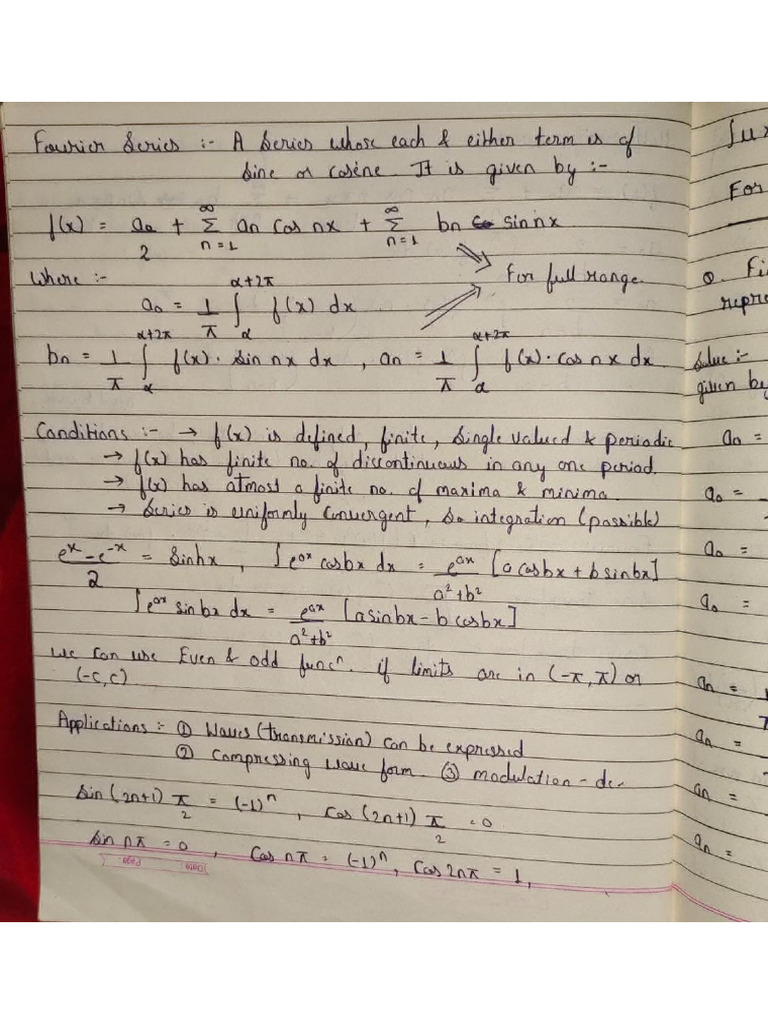 Fourier Series :- A Series whose each & either term is of
Sine or Cosine. It is given by :-
f(x) = a₀/2 + ∞Σn=1 an Cos nx + ∞Σn=1 bn sin nx
Where :-
For full range.
a₀ = 1/π ∫α^α+2π f(x) dx
bn = 1/π ∫α^α+2π f(x) · sin nx dx , an = 1/π ∫α^α+2π f(x) · cos nx dx
Conditions :- → f(x) is defined, finite, Single valued & periodic
→ f(x) has finite no. of discontinuous in any one period.
→ f(x) has atmost a finite no. of maxima & minima.
→ Series is uniformly Convergent, So integration (possible)
eˣ - e⁻ˣ/2 = Sinhx , ∫eᵃˣ cosbx dx = eᵃˣ/a²+b² [a cosbx + b sinbx]
∫eᵃˣ sin bx dx = eᵃˣ/a²+b² [a sinbx - b cosbx]
We can use Even & odd funcⁿ. if limits are in (-π, π) or
(-c, c)
Applications :- ① Waves (transmission) can be expressed
② Compressing wave form. ③ modulation - de-
Sin (2n+1) π/2 = (-1)ⁿ , Cos (2n+1) π/2 = 0
Sin nπ = 0 , Cos nπ = (-1)ⁿ , Cos 2nπ = 1,
Date Page
For
Q. Fi
repre
Solve :-
given by
an =
a₀ =
a₀ =
a₀ =
an =
an =
an =
an =